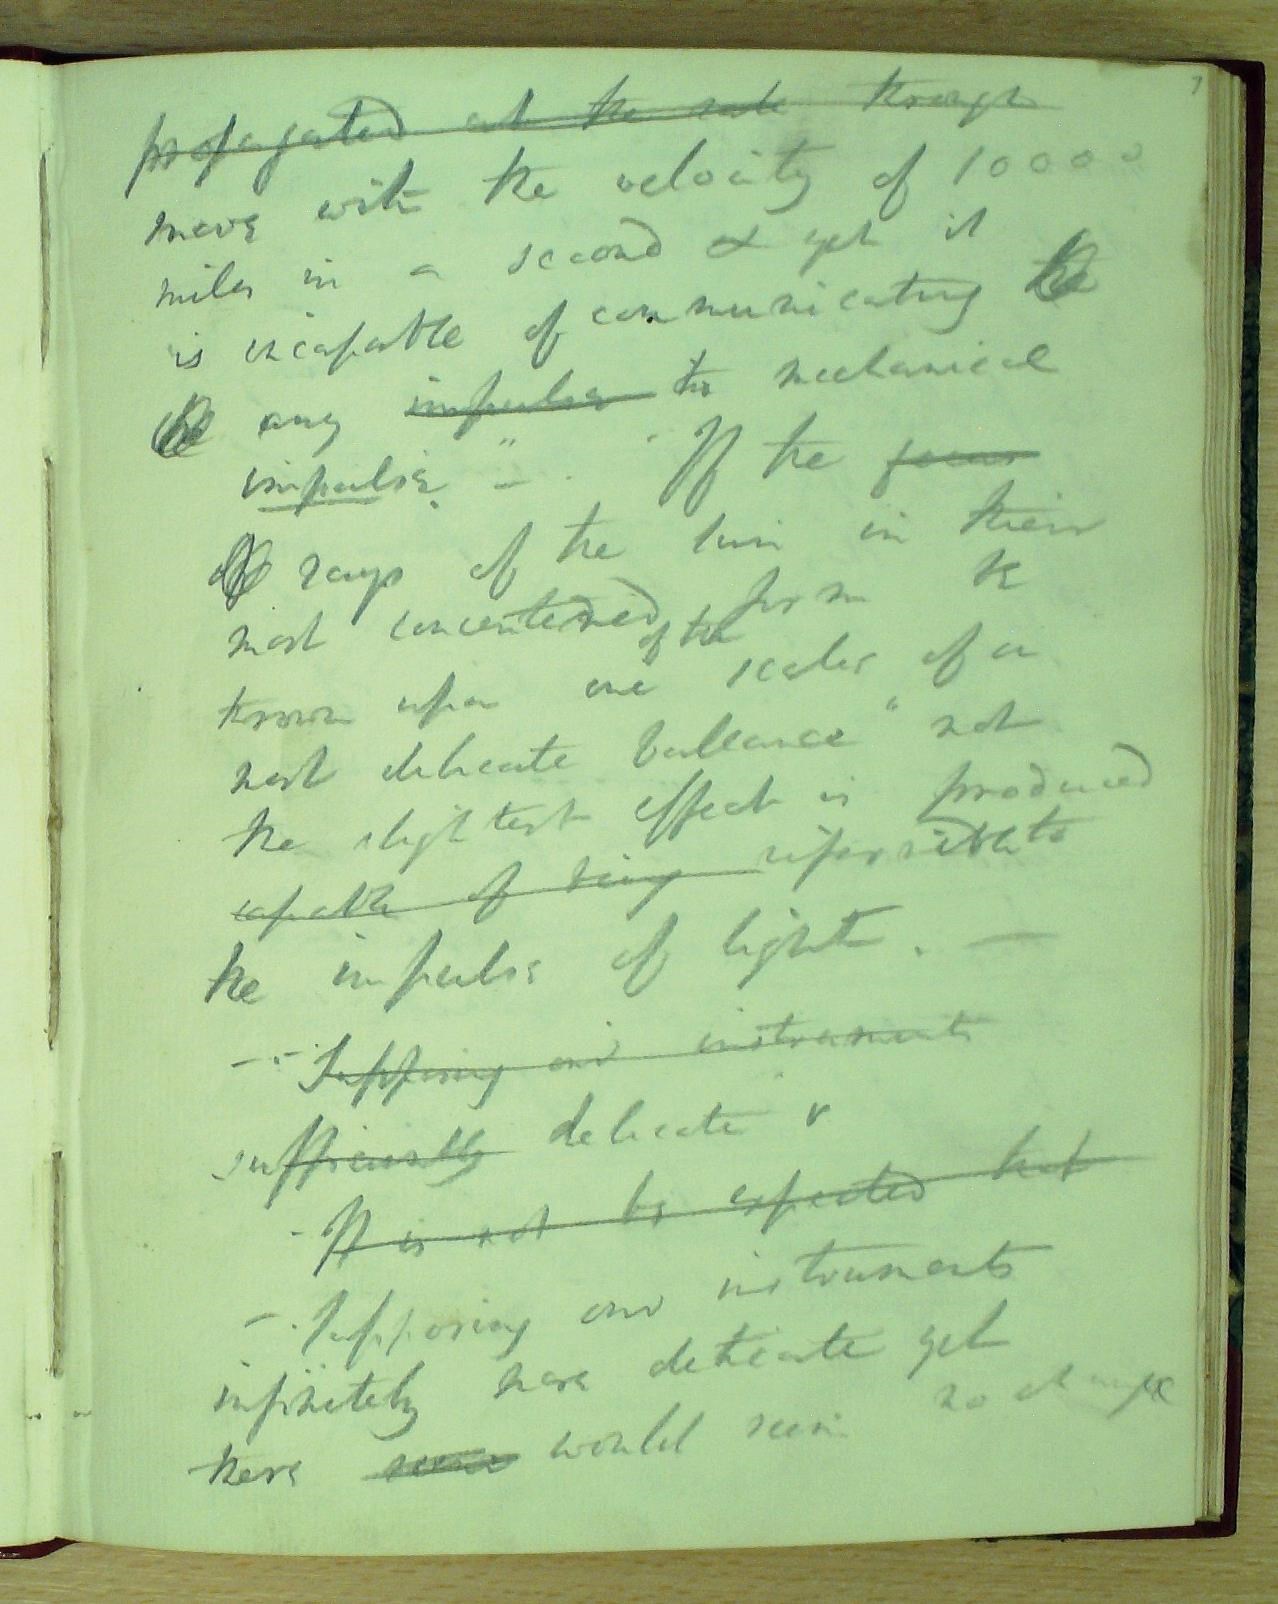 7
propagated at the rate through
move with the velocity of 10000
miles in a second & yet it
is incapable of communicating the
any impulse to mechanical
impulse." — . If the focus
rays of the sun in their
most concentered form be
of the
thrown upon one scales of a
most delicate ballance " not
the slightest effect is produced
capable of being responsible to
the impulse of light. —
— Supposing our instruments
sufficiently delicate &
- It is not be expected that
— Supposing our instruments
infinitely more delicate yet
no change
there seems would seem